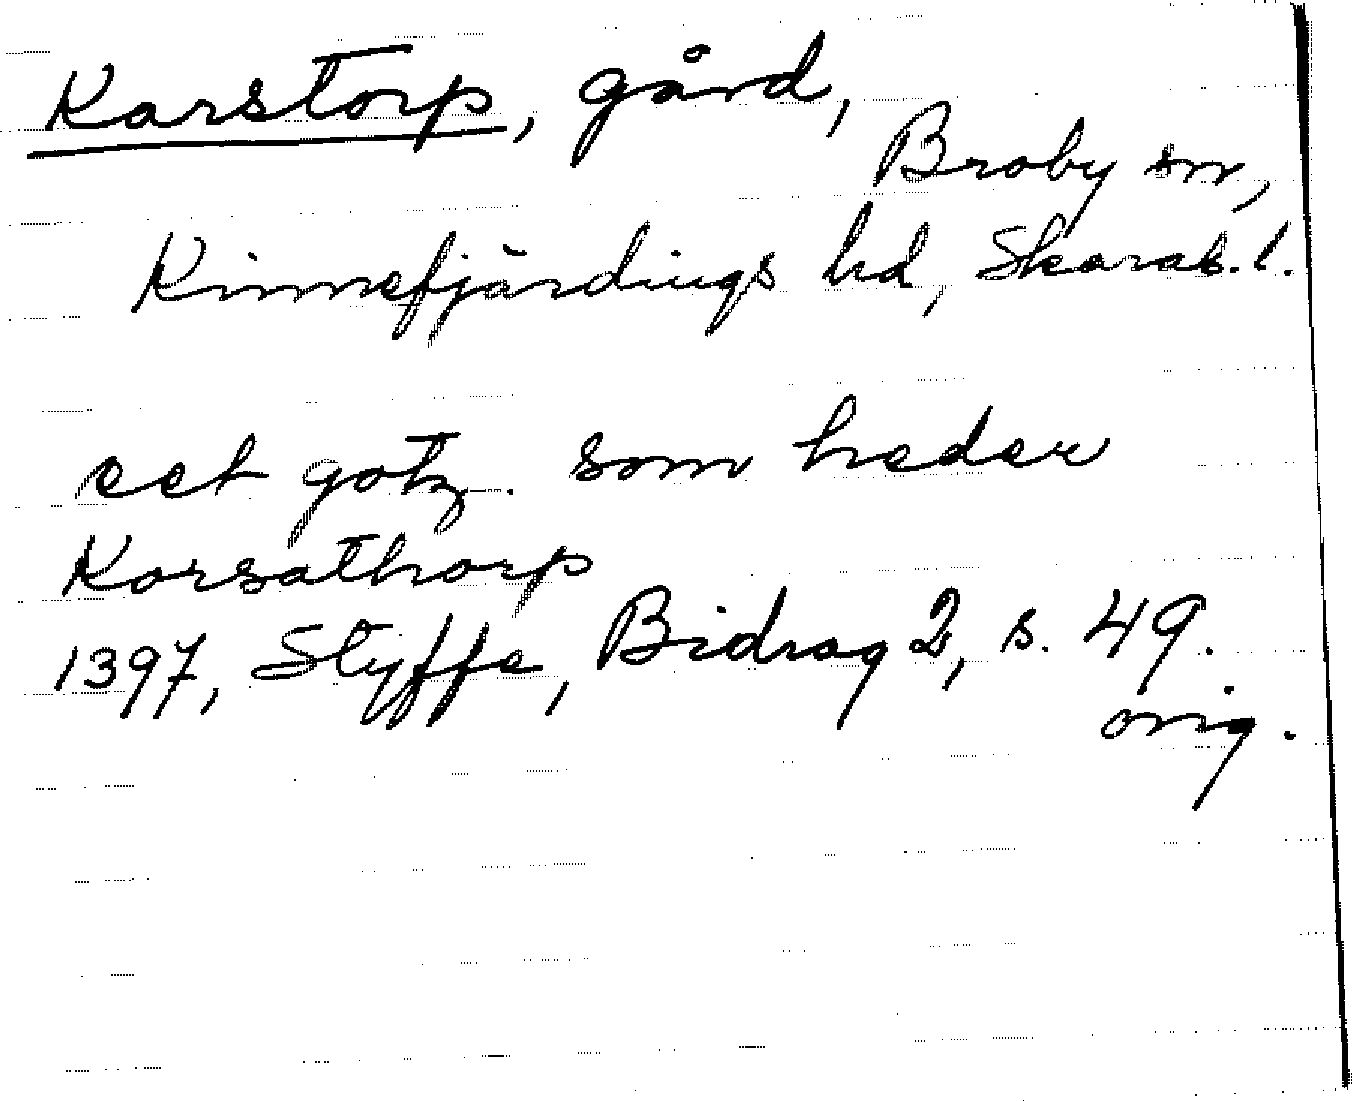 Karstorp, gård,
Broby sn,
Kinnefjärdings hd, Skarab. l.
eet gotz som heder
Karsathorp
1397, Styffe, Bidrag 2, s. 49.
orig.